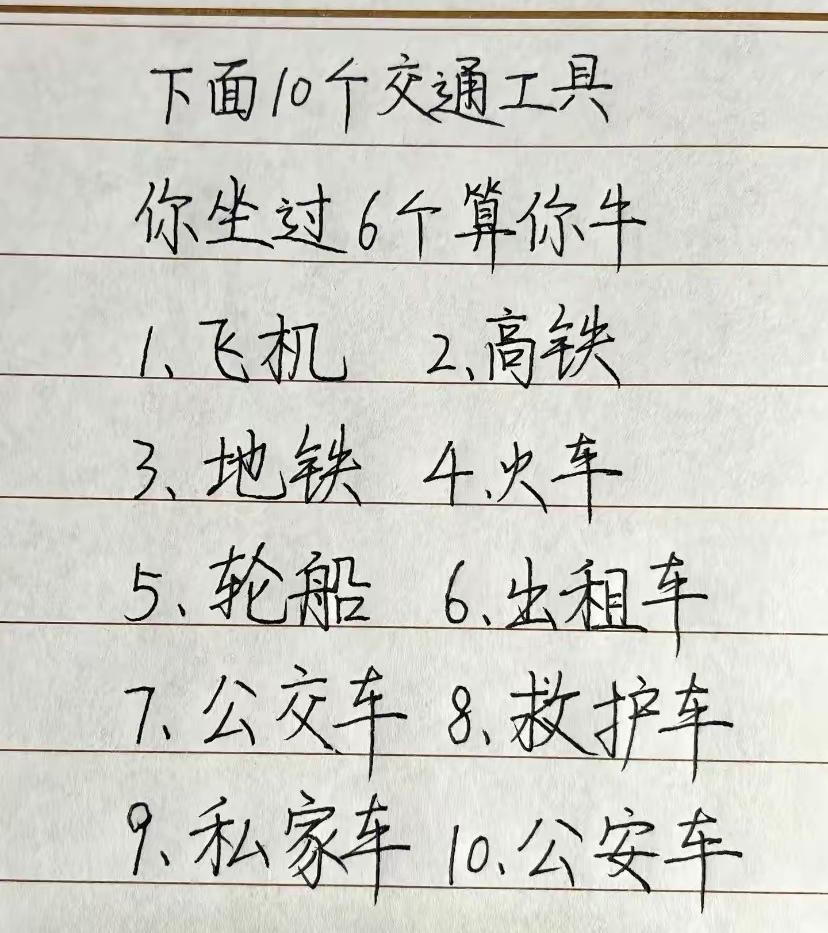 下面10个交通工具
你坐过6个算你牛
1、飞机 2、高铁
3、地铁 4、火车
5、轮船 6、出租车
7、公交车 8、救护车
9、私家车 10、公安车